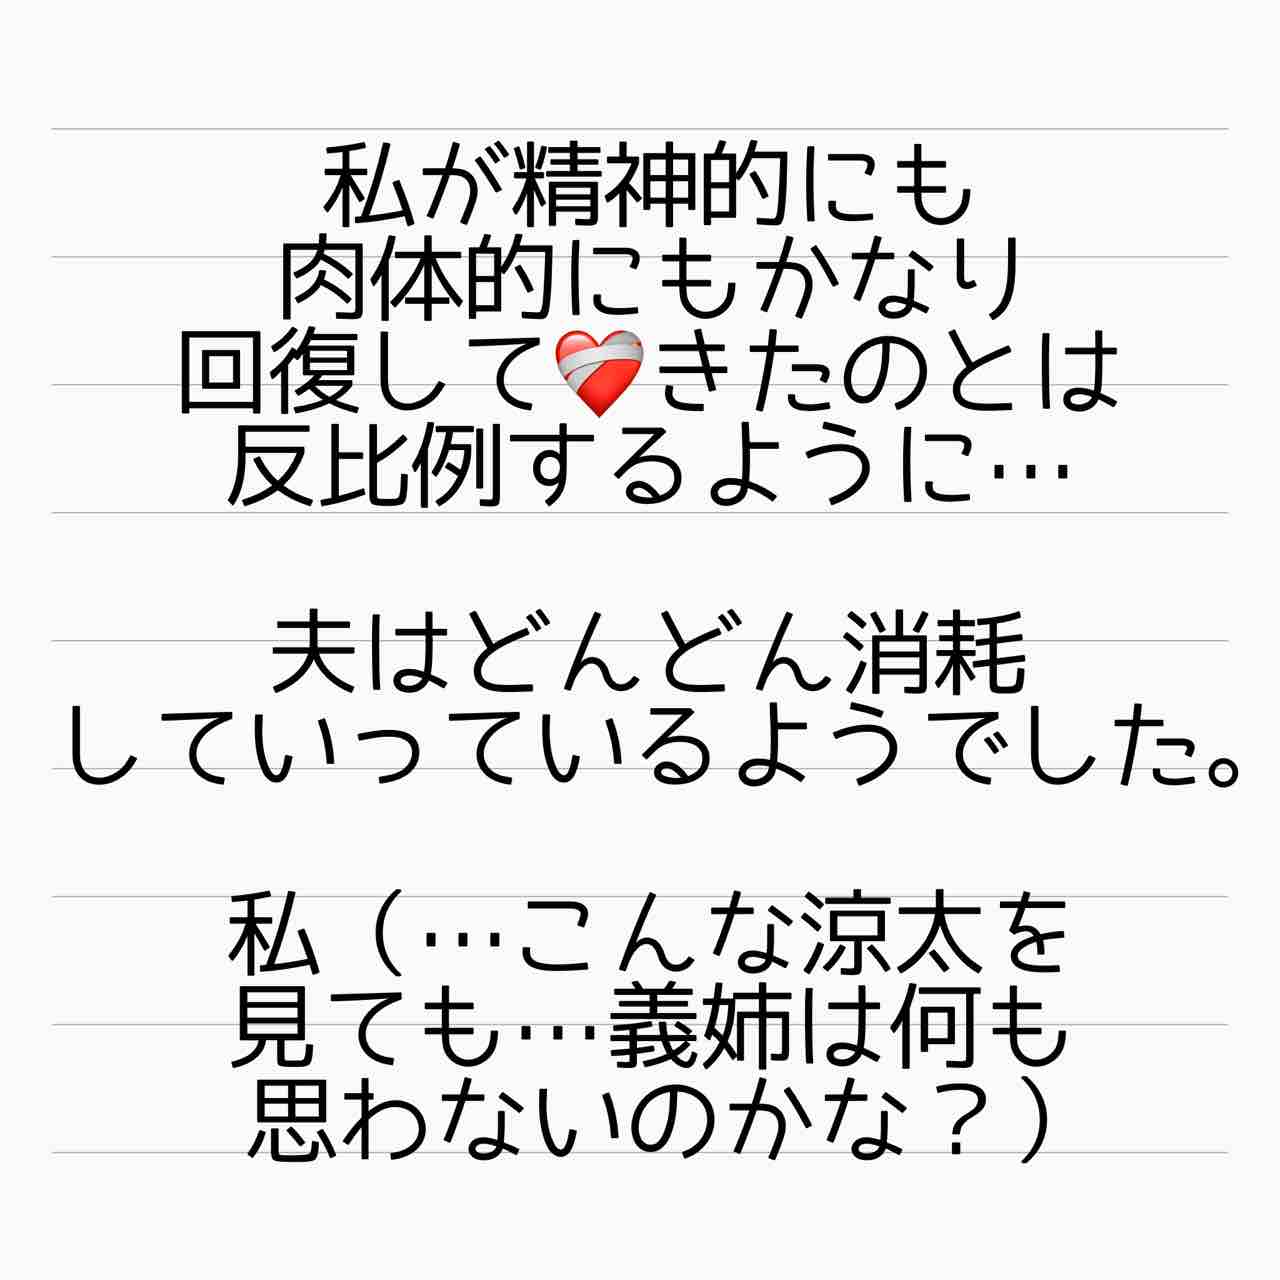 私が精神的にも
肉体的にもかなり
回復して❤️‍🩹きたのとは
反比例するように…
夫はどんどん消耗
していっているようでした。
私（…こんな涼太を
見ても…義姉は何も
思わないのかな？）